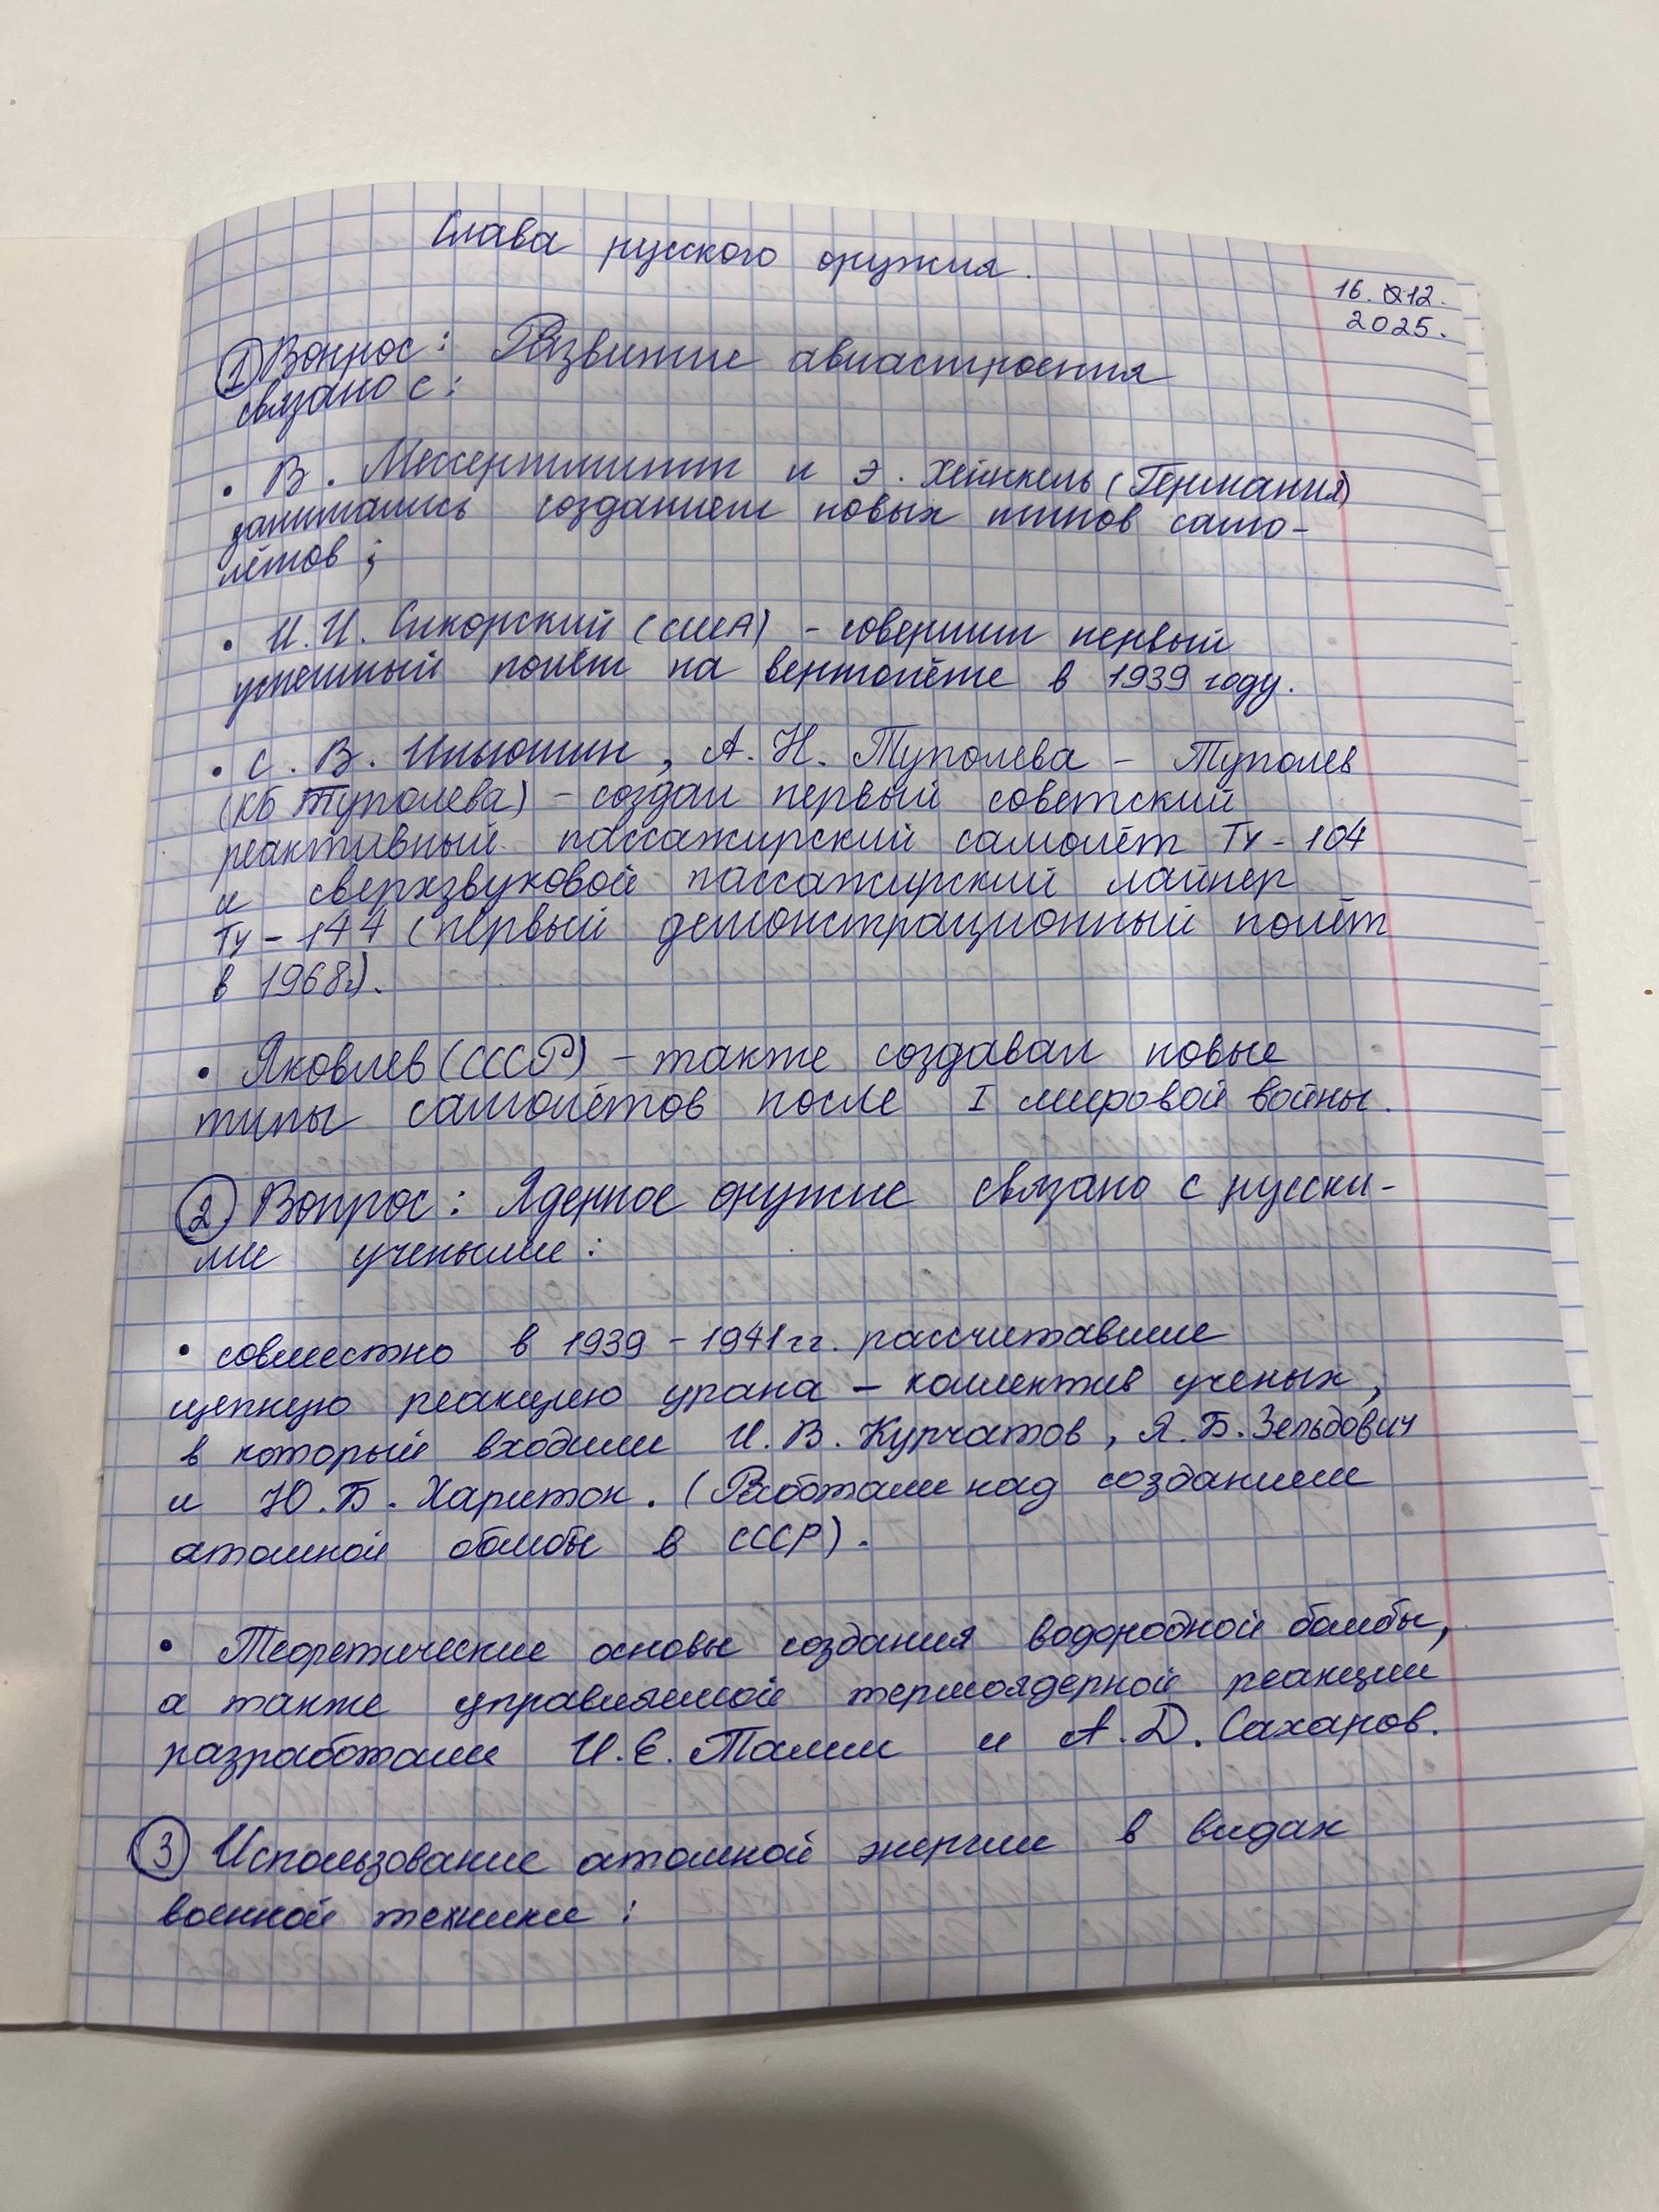 Слава русского оружия.
16. 12.
2025.
1 Вопрос: Развитие авиастроения
связано с:
• В. Мессершмитт и Э. Хейнкель (Германия)
занимались созданием новых типов само-
лётов;
• И.И. Сикорский (США) - совершил первый
успешный полёт на вертолёте в 1939 году.
• С. В. Ильюшин, А. Н. Туполева - Туполев
(КБ Туполева) - создал первый советский
реактивный пассажирский самолёт Ту-104
и сверхзвуковой пассажирский лайнер
Ту-144 (первый демонстрационный полёт
в 1968г).
• Яковлев (СССР) - также создавал новые
типы самолётов после I мировой войны.
2 Вопрос: Ядерное оружие связано с русски-
ми учеными:
• совместно в 1939-1941гг. рассчитавшие
цепную реакцию урана - коллектив ученых,
в который входили И. В. Курчатов, Я. Б. Зельдович
и Ю. Б. Харитон. (Работали над созданием
атомной бомбы в СССР).
• Теоретические основы создания водородной бомбы,
а также управляемой термоядерной реакции
разработали И. Е. Тамм и А. Д. Сахаров.
3 Использование атомной энергии в видах
военной техники: